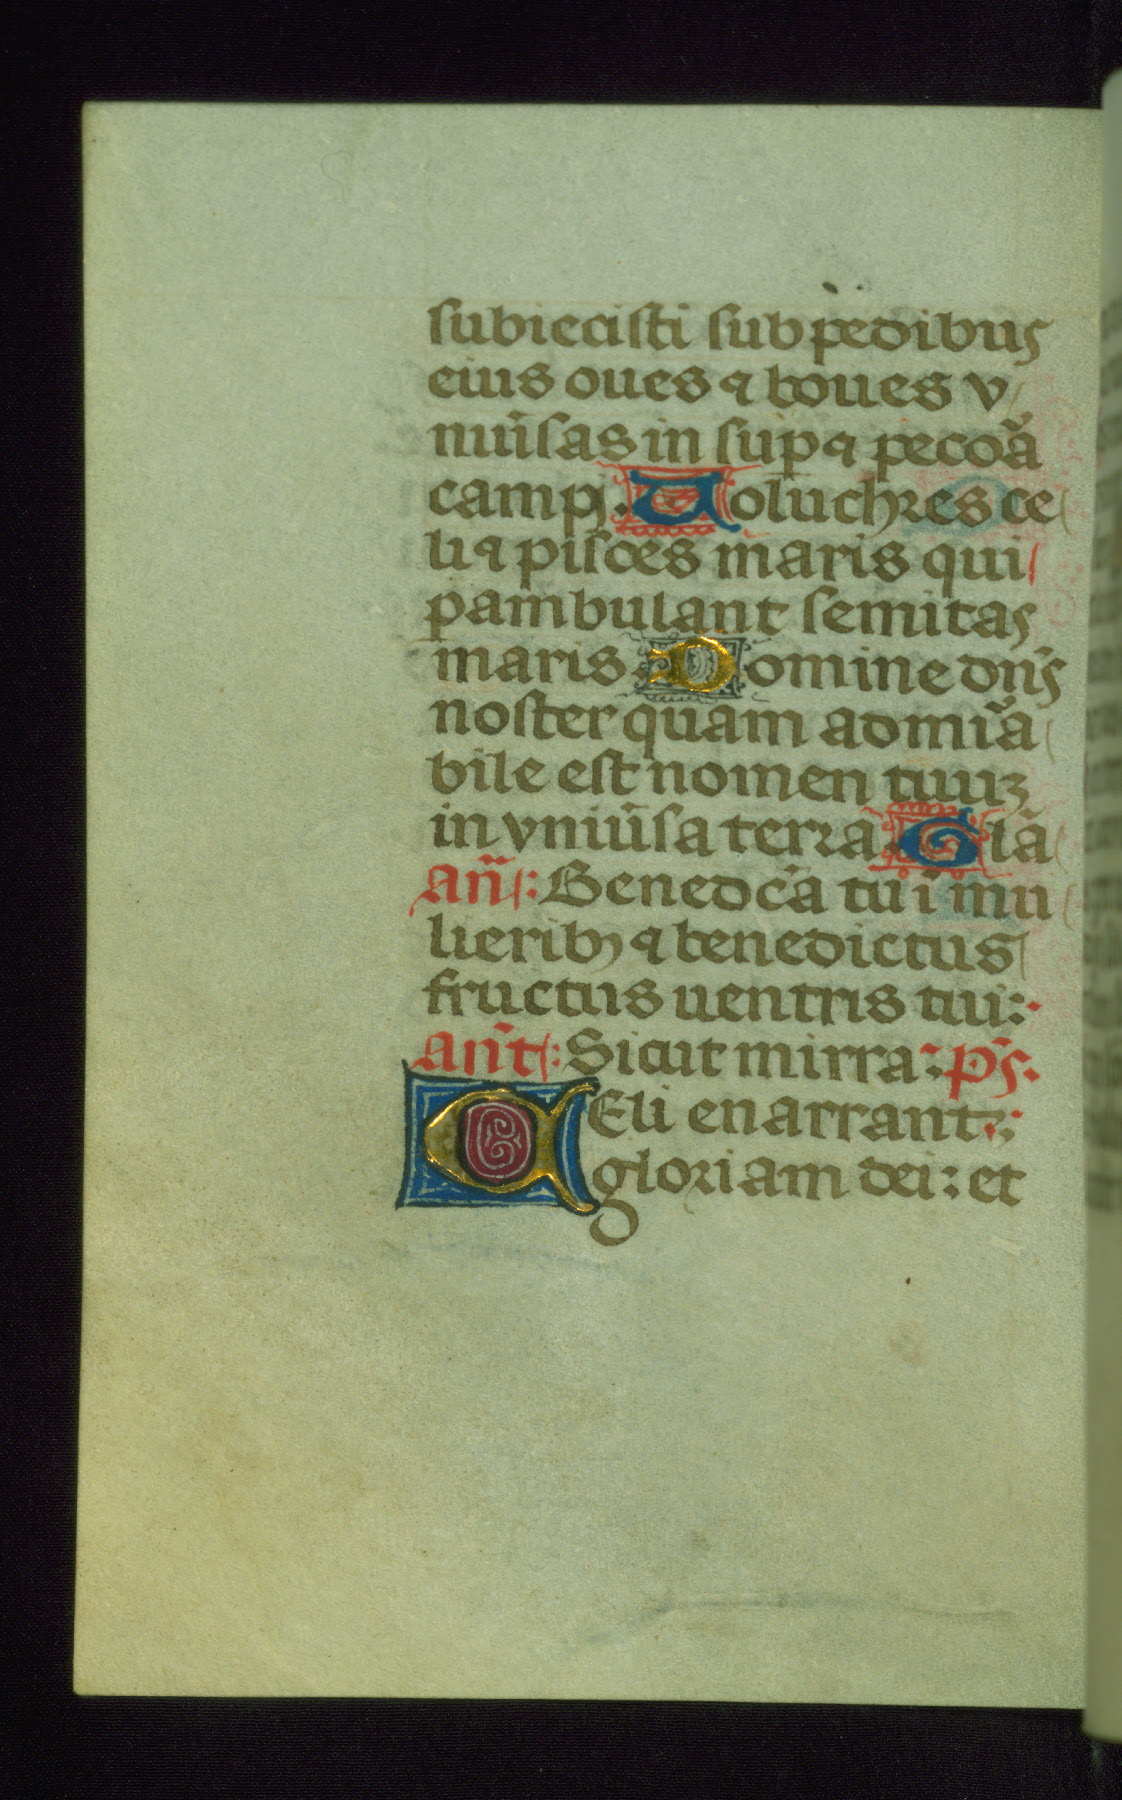 subiecisti sub pedibus
eius oues ⁊ boues v
niu̅sas in sup ⁊ pecoa̅
campi. Uoluchres ce
li ⁊ pisces maris qui
pambulant semitas
maris. Domine dn̅s
noster quam admir̅a
bile est nomen tuuꝫ
in vniu̅sa terra. Gla̅
an̅: Benedc̅a tu i̅ mu
lieribꝫ ⁊ benedictus
fructus uentris tui:
an̅t: Sicut mirra: ps̅.
CEli enarrant
gloriam dei: et